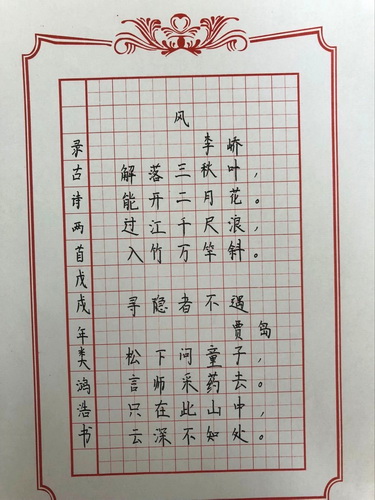 风
李峤
解落三秋叶，
能开二月花。
过江千尺浪，
入竹万竿斜。
寻隐者不遇
贾岛
松下问童子，
言师采药去。
只在此山中，
云深不知处。
录古诗两首戊戌年娄鸿浩书